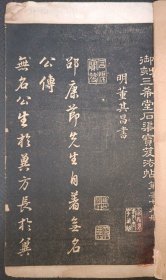 御刻三希堂石渠寶笈法帖第
明董其昌書
邵康節先生自著無名
公傳
無名公生於冀方長於冀